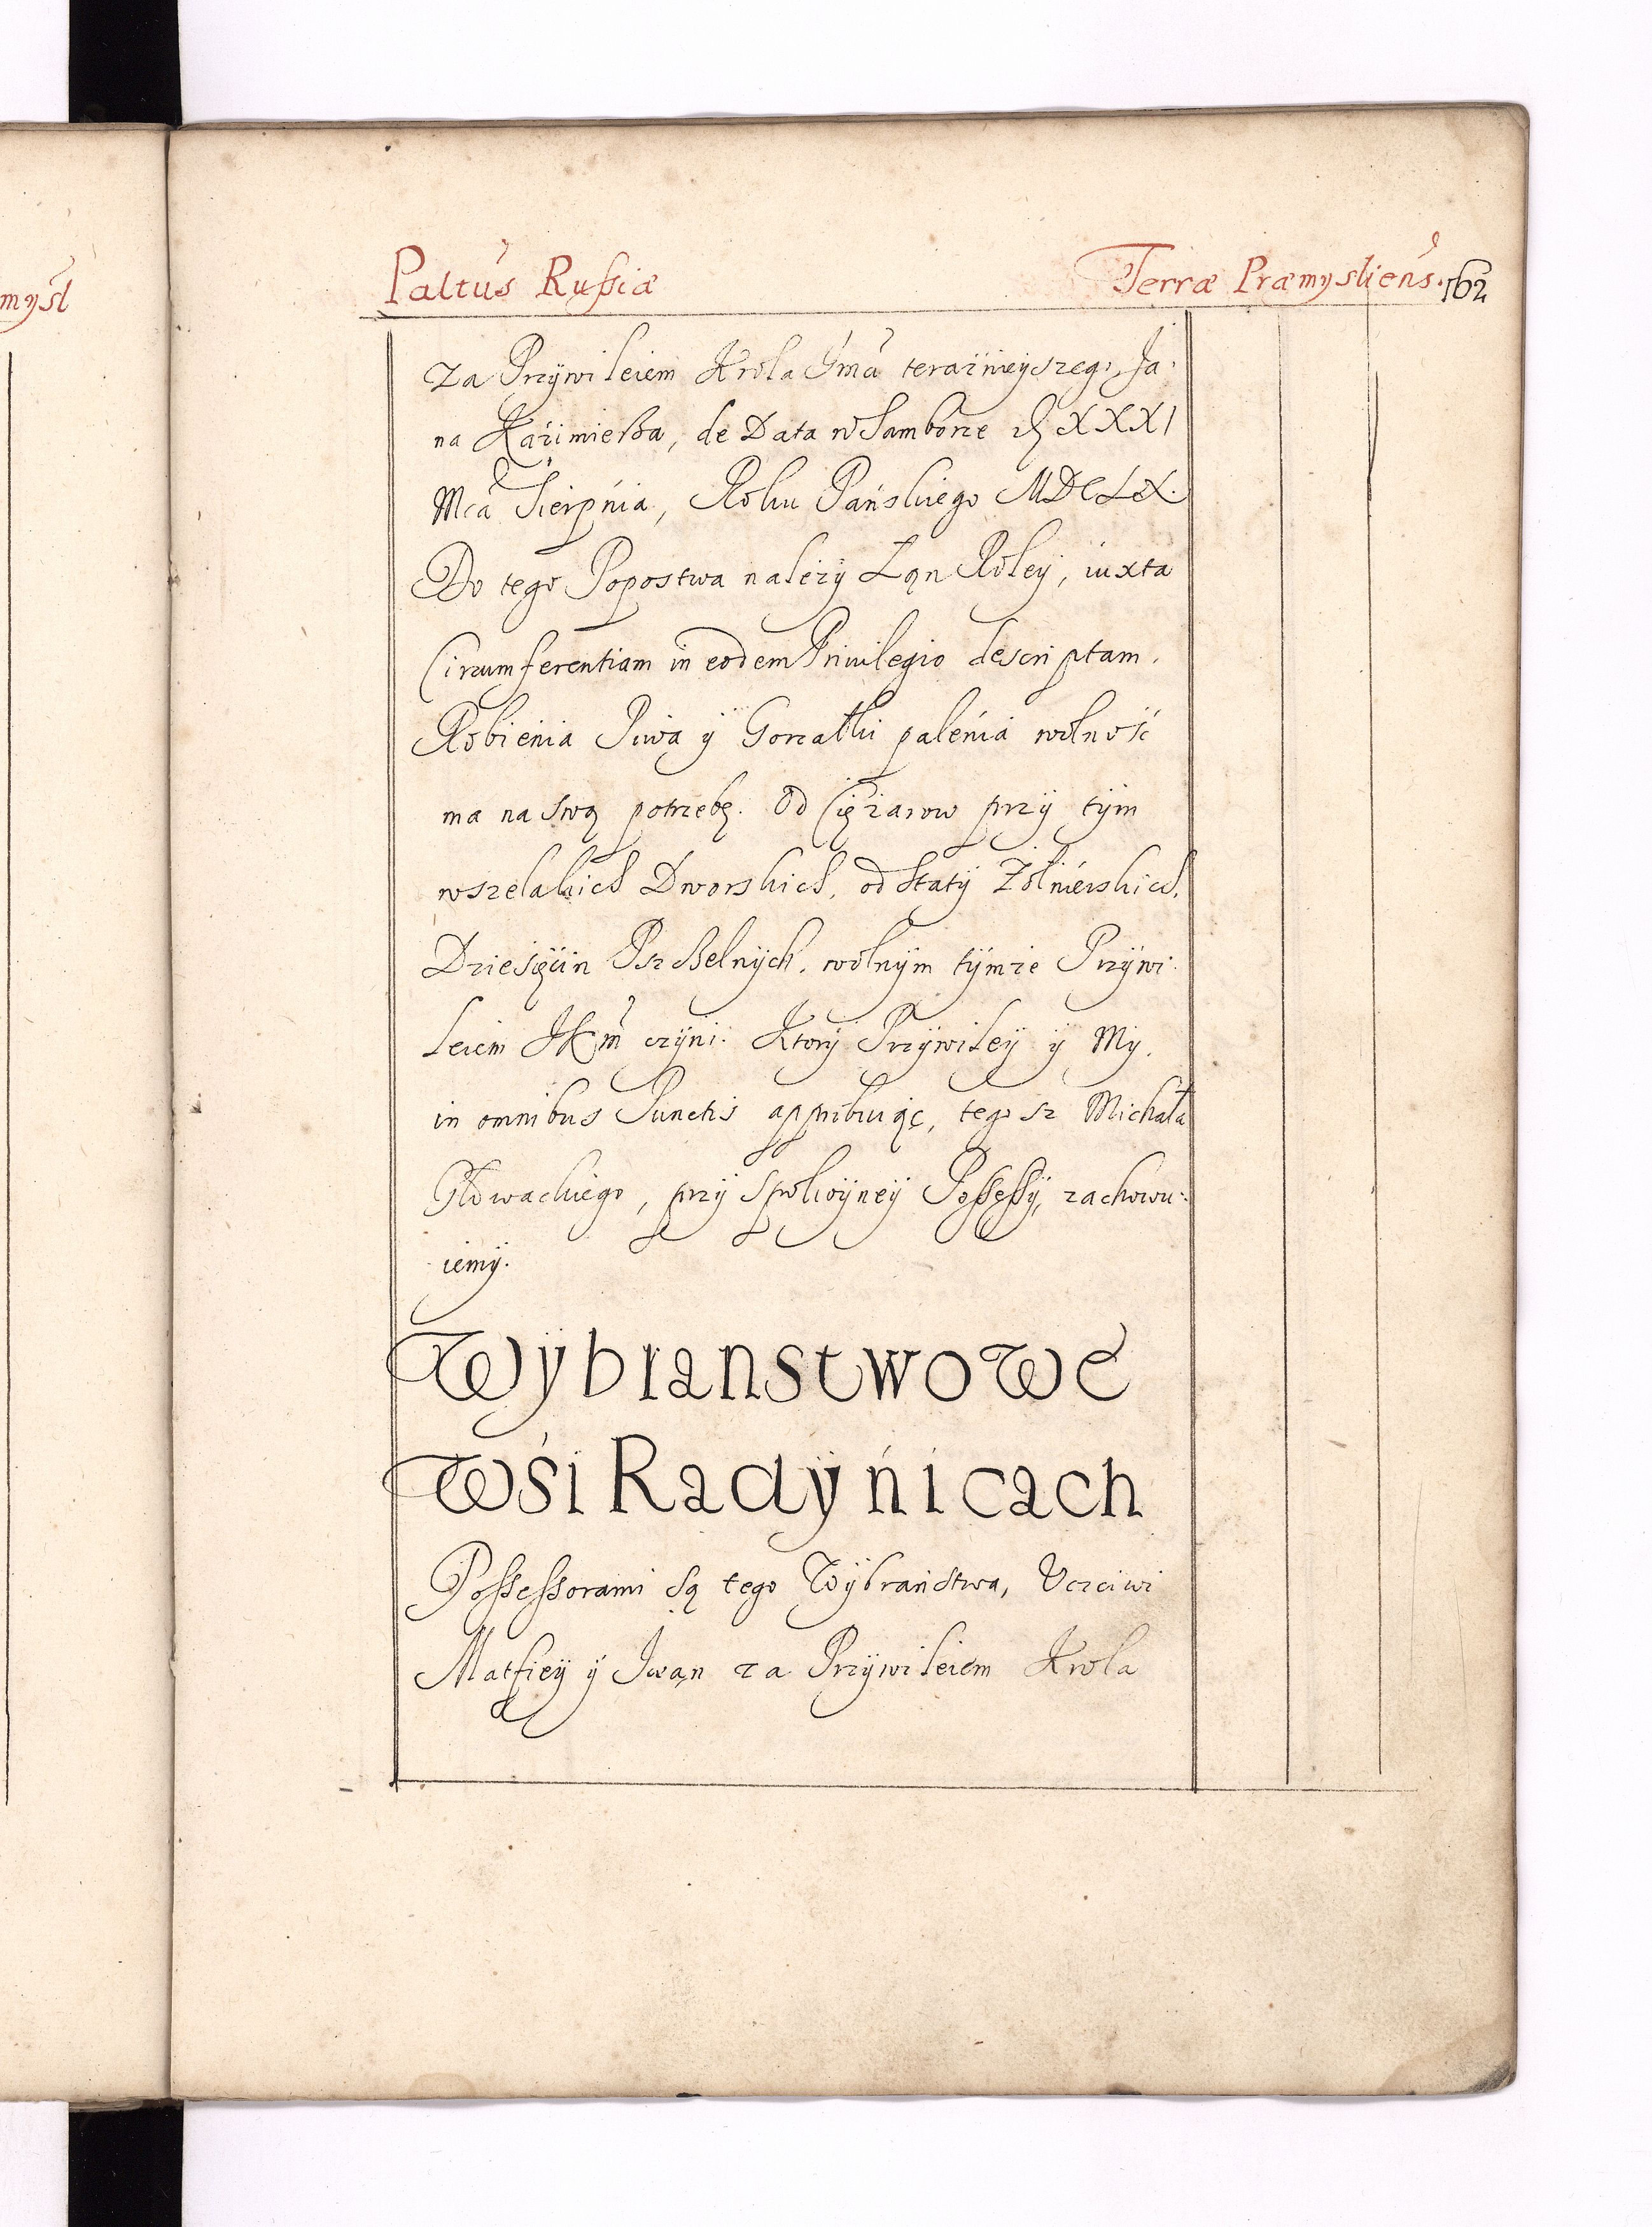 mysl
Paltus Russiæ Terræ Præmysliens. 162
za Przywileiem Krola Jmci teraźnieyszego, Ja-
na Kazimierza, de Data w Samborze XXXI
Mca Sierpnia, Roku Pańskiego MDCLX.
Do tego Popostwa należy Łan Roley, iuxta
Circumferentiam in eodem Priuilegio descriptam.
Robienia Piwa ÿ Gorzałki palenia wolność
ma na swą potrzebę. Od Ciężarow przy tym
wszelakich Dworskich, od Staty Żołnierskich,
Dziesięcin Pszczelnych, wolnym tymże Przywi-
leiem JKM czyni. Ktory Przywiley y My,
in omnibus Punctis approbuiąc, tegosz Michała
Głowackiego, przy spokoyney Possessÿi, zachowu-
iemy.
Wybranstwowe
Wśi Radyńicach
Possessorami są tego Wybraństwa, Uczciwi
Matfiey y Iwan za Przywileiem Krola